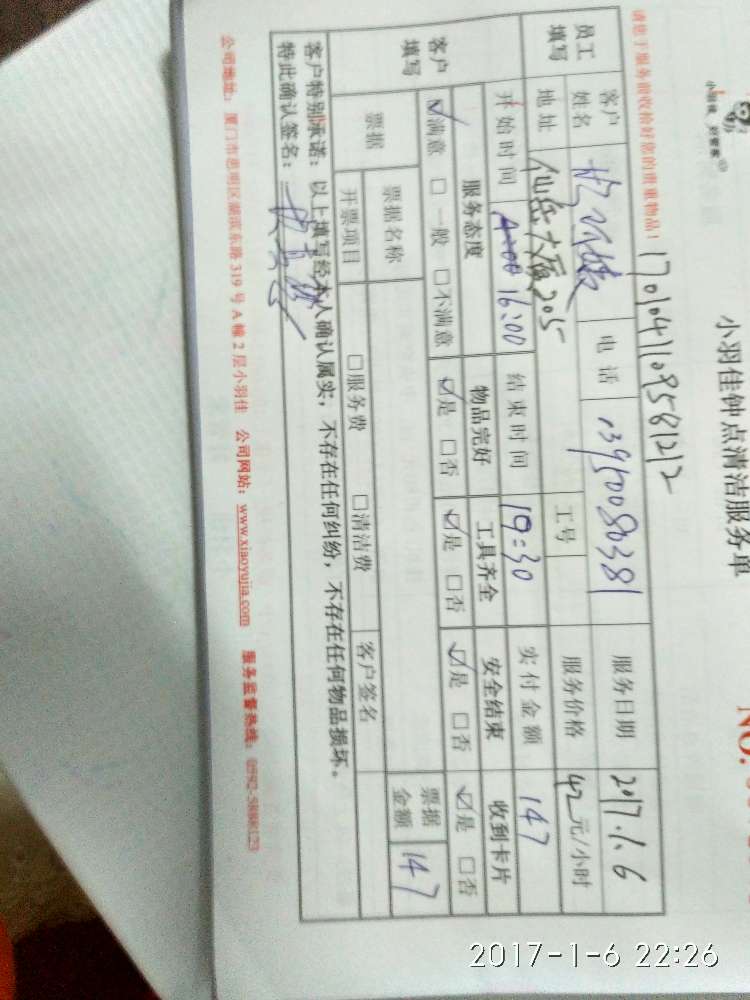 小羽佳钟点清洁服务单
NO.
请您于服务前收拾好您的贵重物品!
1701041109581212
员工填写
客户姓名
电话 13950080381
服务日期 2017.1.6
地址 仙岳大厦205
工号
服务价格 42元/小时
开始时间 16:00
结束时间 19:30
实付金额 147
客户填写
服务态度 物品完好 工具齐全 安全结束 收到卡片
☑满意 □一般 □不满意 ☑是 □否 ☑是 □否 ☑是 □否 ☑是 □否
票据
票据名称
票据金额 147
开票项目 □服务费 □清洁费 客户签名
客户特别承诺:以上填写经本人确认属实,不存在任何纠纷,不存在任何物品损坏。
特此确认签名:
公司地址:厦门市思明区湖滨东路319号A幢2层小羽佳 公司网站:www.xiaoyujia.com 服务监督热线:0592-5888123
2017-1-6 22:26